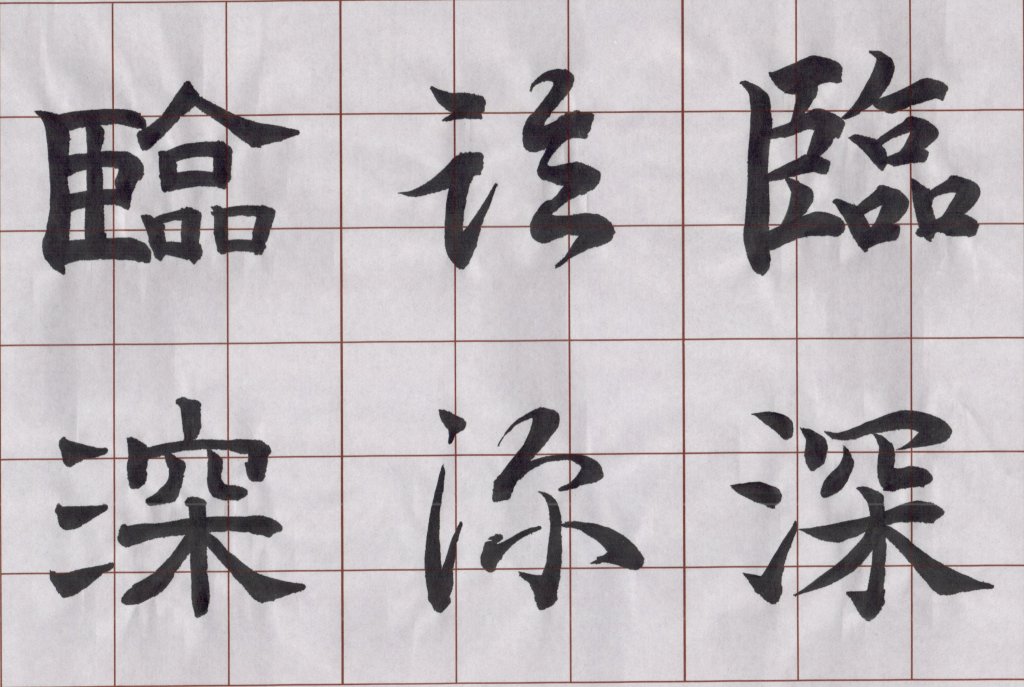 臨深
臨深
臨深